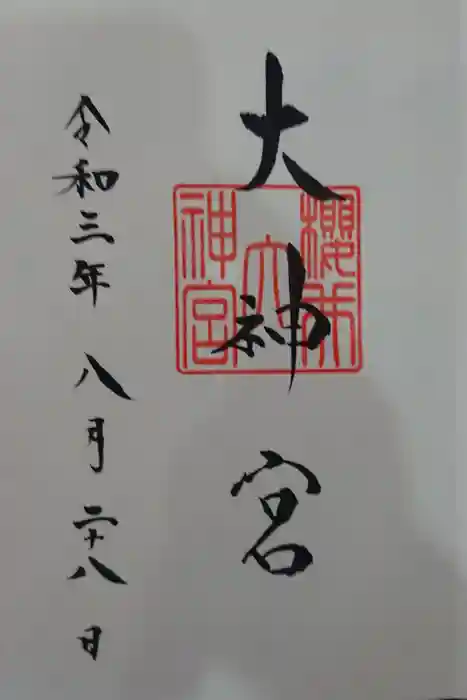 大神宮
櫻
大
神宮
令和三年八月二十八日